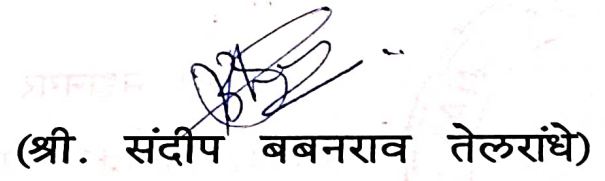 (श्री. संदीप बबनराव तेलरांधे)